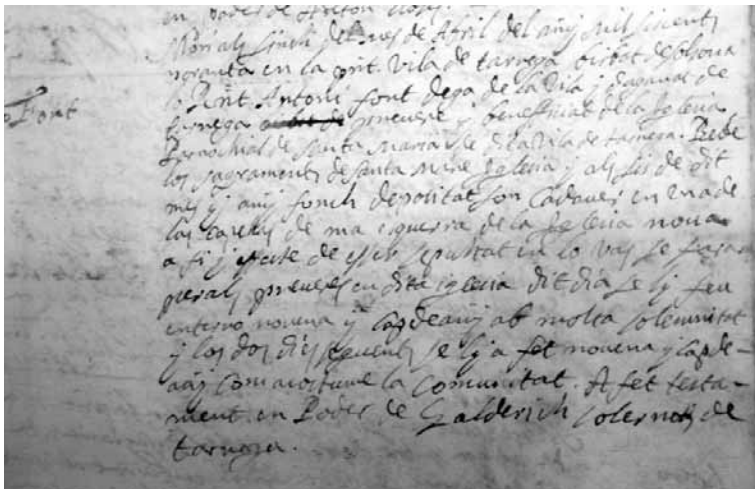 en poder de
Mori als sinch del mes de Abril del añy mil siscents
noranta en la pnt. Vila de tarrega bisbat de solsona
lo Rnt. Antoni font dega de la Vila y deganat de
Font
tarrega prevere y beneficiat de la Iglesia
Parrochial de Santa Maria de dita Vila de tarrega. Rebe
los sagraments de santa mare Iglesia y als sis de dit
mes y añy fonch depositat son Cadaver en una de
las capellas de ma esquerra de la Iglesia nova
a fi y effecte de esser sepultat en lo vas se fara
peral preveres en dita iglesia dit dia se li feu
enterro novena y Cap de añy ab molta solemnitat
y los dos dies seguents se ly a fet novena y cap de
añy com acostuma la Comunitat. A fet testa-
ment en Poder de Galderich solernou de
tarrega.